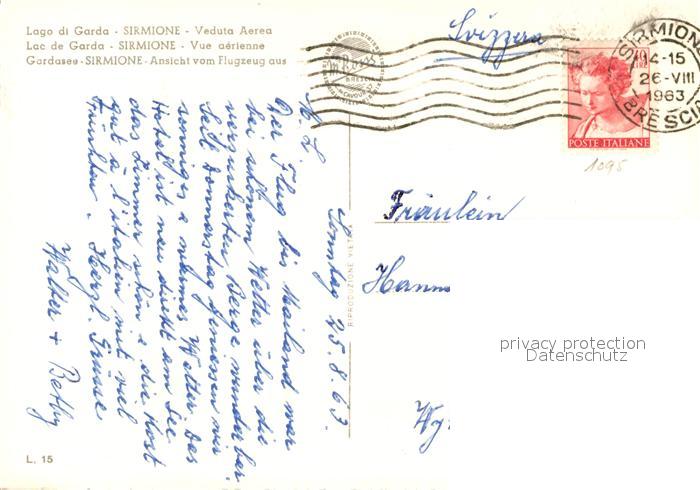 Lago di Garda - SIRMIONE - Veduta Aerea
Lac de Garda - SIRMIONE - Vue aérienne
Gardasee - SIRMIONE - Ansicht vom Flugzeug aus
Svizzera
SIRMIONE
14-15
26-VIII
1963
BRESCIA
POSTE ITALIANE
1095
BRESCIA
Sonntag 25.8.63.
M. L.
Der Flug bis Mailand war
bei schönem Wetter über die
verzuckerten Berge wunderbar.
Seit Donnerstag geniessen wir
sonniges & warmes Wetter. Das
Hotel ist neu direkt am See
das Zimmer schön & die Kost
gut à l'italien mit viel
Früchten. Herzl. Grüsse
Walter + Betty
RIPRODUZIONE VIETATA
Fräulein
Hanni
privacy protection
Datenschutz
Wy
L. 15